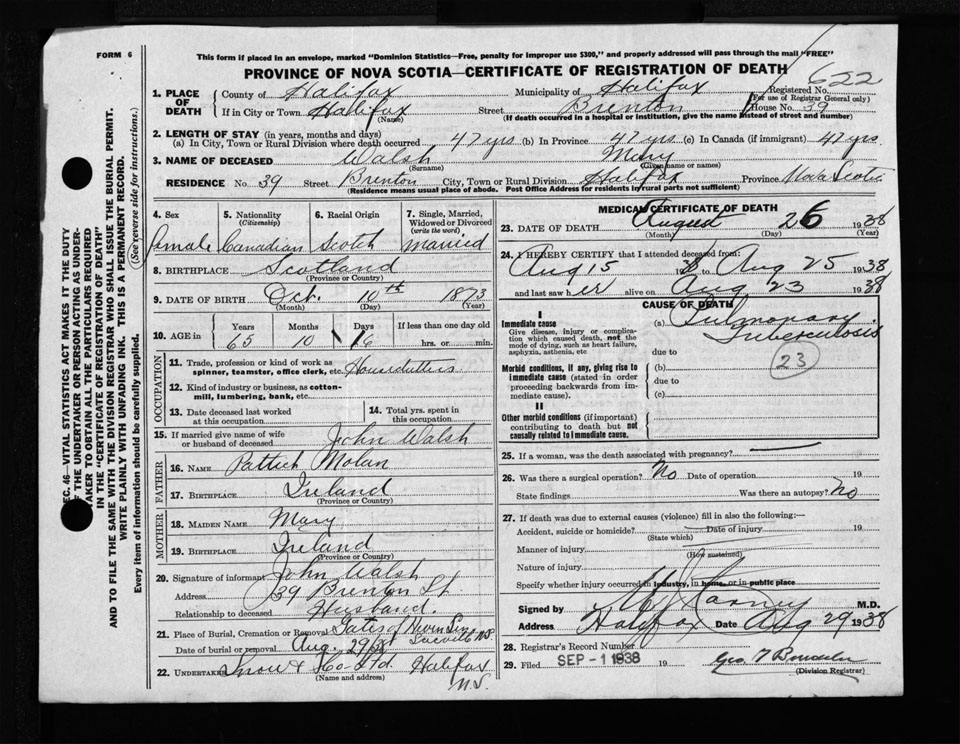 FORM 6
This form if placed in an envelope, marked "Dominion Statistics—Free, penalty for improper use $300," and properly addressed will pass through the mail "FREE"
PROVINCE OF NOVA SCOTIA—CERTIFICATE OF REGISTRATION OF DEATH
622
1. PLACE OF DEATH
County of Halifax Municipality of Halifax Registered No.
(For use of Registrar General only)
If in City or Town Halifax Street Brenton House No. 39
(Name) (If death occurred in a hospital or institution, give the name instead of street and number)
2. LENGTH OF STAY (in years, months and days)
(a) In City, Town or Rural Division where death occurred 47 yrs (b) In Province 47 yrs (c) In Canada (if immigrant) 47 yrs
3. NAME OF DECEASED Walsh Mary
(Surname) (Given name or names)
RESIDENCE No. 39 Street Brenton City, Town or Rural Division Halifax Province Nova Scotia
(Residence means usual place of abode. Post Office Address for residents in rural parts not sufficient)
4. Sex 5. Nationality (Citizenship) 6. Racial Origin 7. Single, Married, Widowed or Divorced (write the word)
female Canadian Scotch Married
8. BIRTHPLACE Scotland
(Province or Country)
9. DATE OF BIRTH Oct. 10th 1873
(Month) (Day) (Year)
10. AGE in Years Months Days If less than one day old
65 10 16 hrs. or min.
OCCUPATION
11. Trade, profession or kind of work as spinner, teamster, office clerk, etc. Houseduties
12. Kind of industry or business, as cotton-mill, lumbering, bank, etc.
13. Date deceased last worked at this occupation
14. Total yrs. spent in this occupation
15. If married give name of wife or husband of deceased John Walsh
FATHER
16. NAME Patrick Molan
17. BIRTHPLACE Ireland
(Province or Country)
MOTHER
18. MAIDEN NAME Mary
19. BIRTHPLACE Ireland
(Province or Country)
20. Signature of informant John Walsh
Address 39 Brenton St
Relationship to deceased Husband.
21. Place of Burial, Cremation or Removal Gates of Heaven
Date of burial or removal Aug. 29/38
22. UNDERTAKER Snow & Co Ltd. Halifax
(Name and address) N.S.
MEDICAL CERTIFICATE OF DEATH
23. DATE OF DEATH August 26 1938
(Month) (Day) (Year)
24. I HEREBY CERTIFY that I attended deceased from:
Aug 15 1938 to Aug 25 1938
and last saw her alive on Aug 23 1938
CAUSE OF DEATH
I
Immediate cause
Give disease, injury or complication which caused death, not the mode of dying, such as heart failure, asphyxia, asthenia, etc
(a) Pulmonary Tuberculosis
23
due to
Morbid conditions, if any, giving rise to immediate cause (stated in order proceeding backwards from immediate cause).
(b)
due to
(c)
II
Other morbid conditions (if important) contributing to death but not causally related to immediate cause.
25. If a woman, was the death associated with pregnancy?
26. Was there a surgical operation? No Date of operation 19
State findings Was there an autopsy? No
27. If death was due to external causes (violence) fill in also the following:—
Accident, suicide or homicide? Date of injury 19
(State which)
Manner of injury
(How sustained)
Nature of injury
Specify whether injury occurred in industry, in home, or in public place
Signed by M.D.
Address Halifax Date Aug 29 1938
28. Registrar's Record Number
29. Filed SEP -1 1938 19
(Division Registrar)
SEC. 46—VITAL STATISTICS ACT MAKES IT THE DUTY
OF THE UNDERTAKER OR PERSON ACTING AS UNDERTAKER TO OBTAIN ALL THE PARTICULARS REQUIRED
IN THE "CERTIFICATE OF REGISTRATION OF DEATH"
AND TO FILE THE SAME WITH THE DIVISION REGISTRAR WHO SHALL ISSUE THE BURIAL PERMIT.
WRITE PLAINLY WITH UNFADING INK. THIS IS A PERMANENT RECORD.
Every item of information should be carefully supplied. (See reverse side for instructions.)